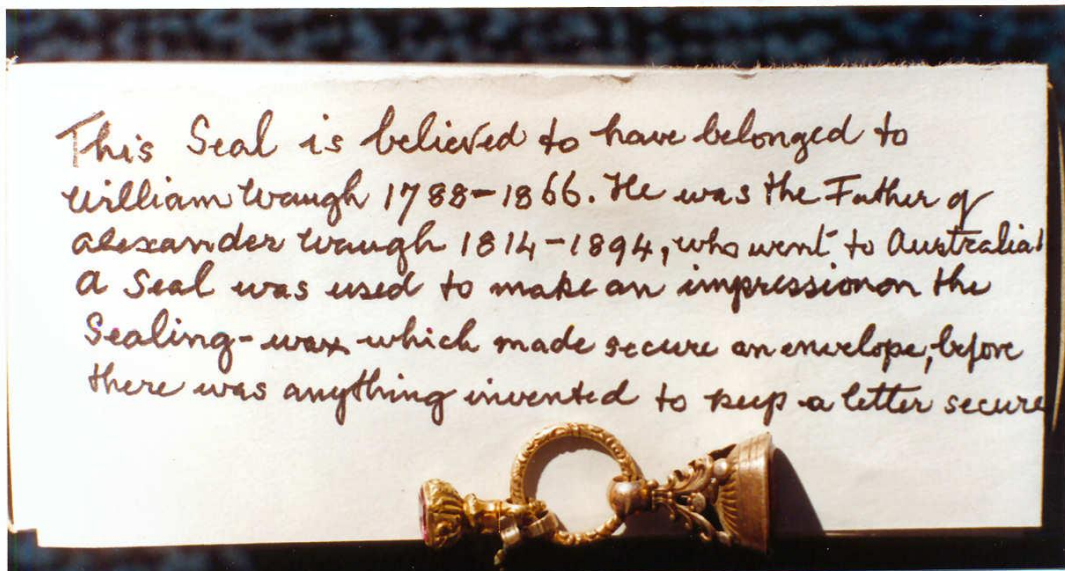 This Seal is believed to have belonged to
William Waugh 1788-1866. He was the Father of
Alexander Waugh 1814-1894, who went to Australia.
A Seal was used to make an impression on the
Sealing-wax which made secure an envelope, before
there was anything invented to keep a letter secure